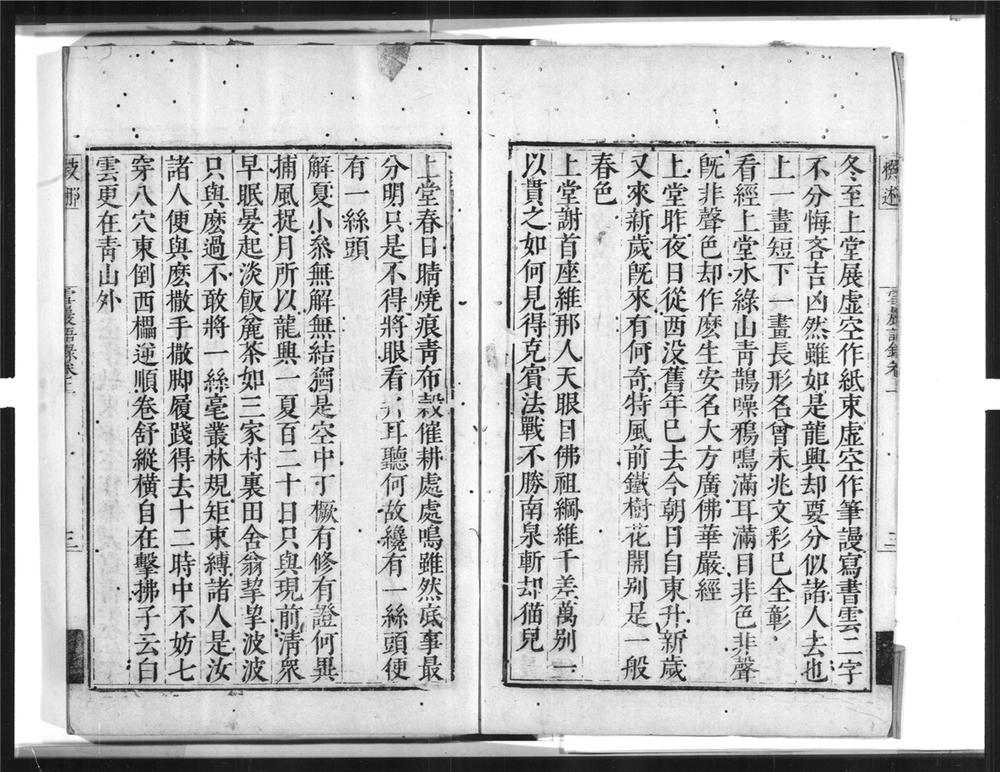 冬至上堂展虛空作紙束虛空作筆謾寫書雲二字
不分悔吝吉凶然雖如是龍興却要分似諸人去也
上一畫短下一畫長形名曾未兆文彩已全彰
看經上堂水綠山青鵲噪鴉鳴滿耳滿目非色非聲
旣非聲色却作麽生安名大方廣佛華嚴經
上堂昨夜日從西没舊年已去今朝日自東升新歲
又來新歲旣來有何奇特風前鐵樹花開别是一般
春色
上堂謝首座維那人天眼目佛祖綱維千差萬别一
以貫之如何見得克賓法戰不勝南泉斬却猫兒
上堂春日晴燒痕青布穀催耕處處鳴雖然底事最
分明只是不得將眼看 耳聽何故纔有一絲頭便
有一絲頭
解夏小叅無解無結猶是空中丁橛有修有證何異
捕風捉月所以龍興一夏百二十日只與現前清衆
早眠晏起淡飯麄茶如三家村裏田舍翁挈挈波波
只與麽過不敢將一絲毫叢林規矩束縛諸人是汝
諸人便與麽撒手撒脚履踐得去十二時中不妨七
穿八穴東倒西櫑逆順卷舒縱橫自在擊拂子云白
雲更在青山外
雲巖語錄卷二
三